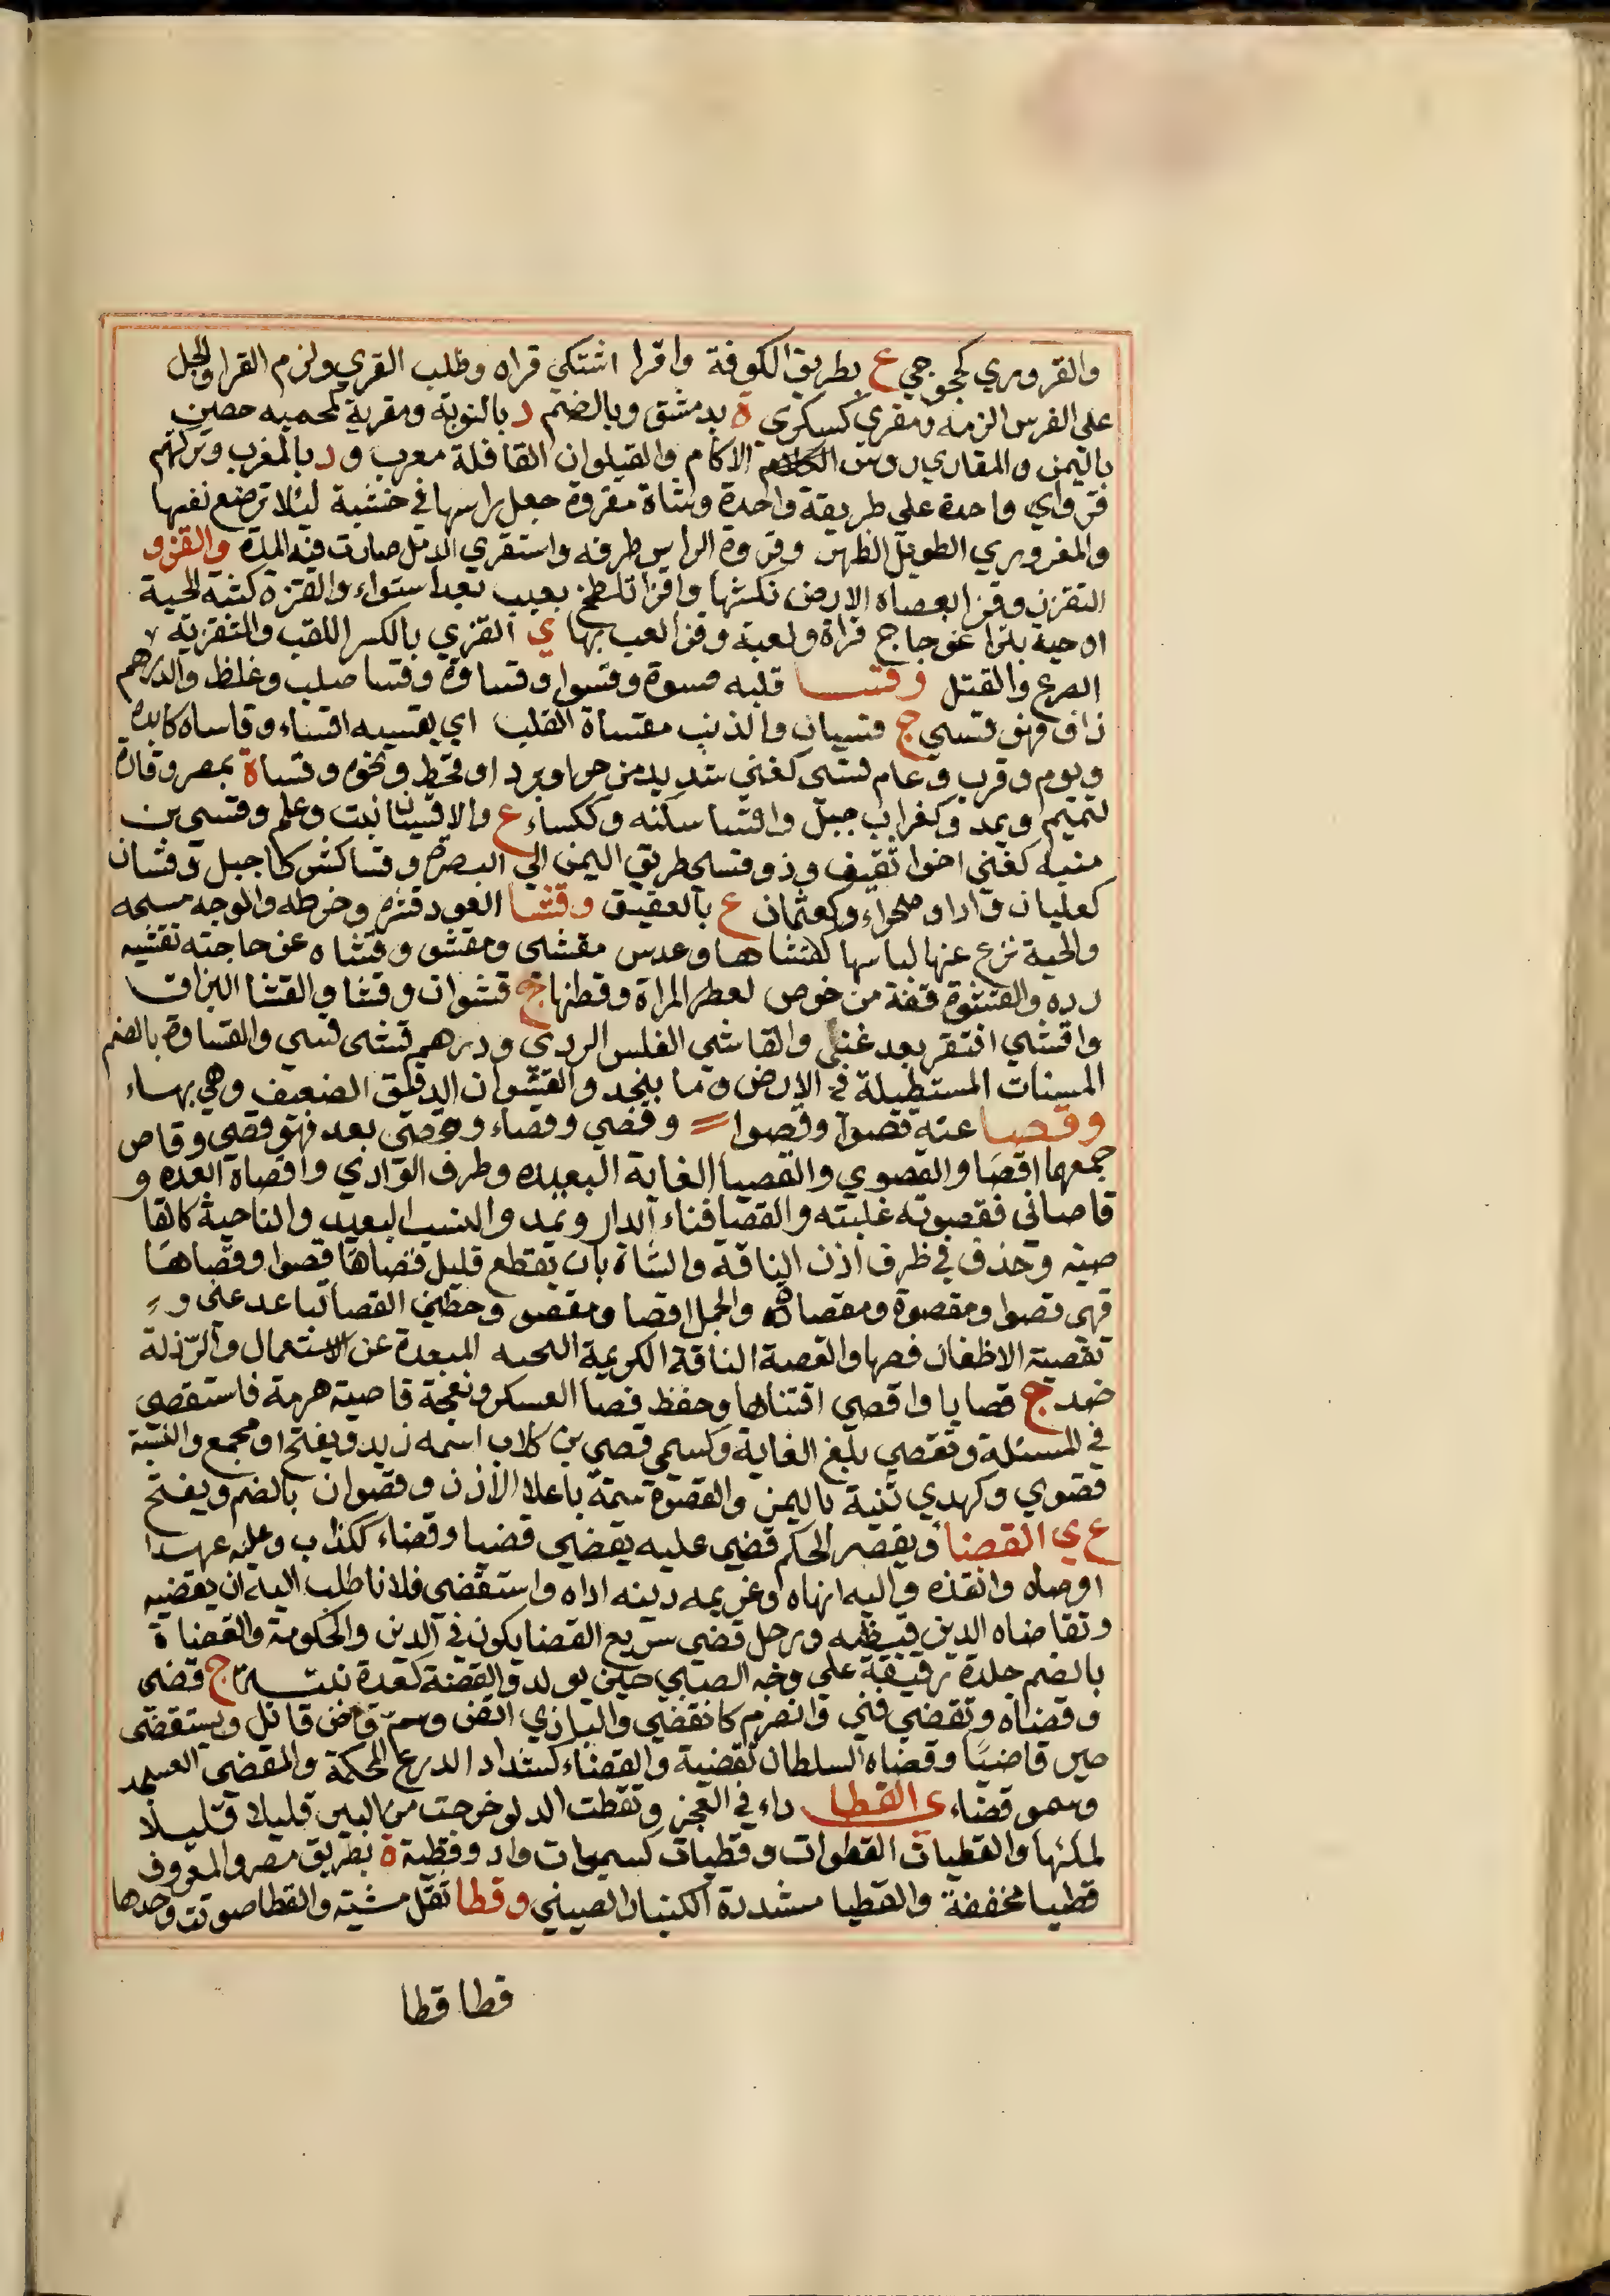 والقروري كجحوجي ع بطريق الكوفة واقرا اشتكي قراه وطلب القري ولزم القرا والجل
على الفرس الزمه ومقري كسكرى ة بدمشق وبالضم د بالنوبة ومقرية كمحميه حصين
باليمن والمقاري روس الاكام والقيلوان القافلة معرب ود بالمغرب وتركتهم
قرواي واحدة على طريقة واحدة وشاة مقروة جعل راسها في خشبة ليلا ترضع نفسها
والمقروري الطويل الظهر وقروة الراس طرفه واستقري الدمل صارت فيه المدة والقزو
التقزز وقزا بعصاه الارض نكشها واقزا تلطخ بعيب بعد استواء والقزة كثبه الحية
او حية بترا عوجا ج قزاة ولعبة وقزا لعب بها ي القزي بالكسر اللقب والتقزية
الصرع والقتل وقسا قلبه قسوة وقسوا وقساوة وقسا صلب وغلظ والدرهم
زاف فهو قسي ج قسيان والذنب مقساة القلب اي يقسيه اقساء وقاساه كابده
ويوم وقرب وعام قسي كغني شديد من حر او برد او قحط ونحوه وقساة بمصر وقارة
لتميم ويمد وكغراب جبل واقسا سكنه وككساء ع والاقسيان نبت وعلم وقسي بن
منبه كغني اخوا ثقيف وذو قسي طريق اليمن الي البصرة وقسا كشركا جبل وقسان
كعليان واد او صحراء وكعثمان ع بالعقيق وقشا العود قشره وخرطه والوجه مسحه
والحية نزع عنها لباسها كقشاها وعدس مقشى ومقشو وقشاه عن حاجته تقشيه
رده والقشوة قفة من خوص لعطر المراة وقطنها ج قشوات وقشا والقشا البزاق
واقشي افتقر بعد غني والقاشي الفلس الردي ودرهم قشى قسي والقساوة بالضم
المسنات المستطيلة في الارض وما بنجد والقشوان الدقيق الضعيف وهي بهاء
وقصا عنه قصوا وقصوا وقصي وقصاء وقصى بعد فهو قصي وقاص
جمعهما اقصا والقصوي والقصيا الغاية البعيده وطرف الوادي واقصاه ابعده و
قاصاني فقصوته غلبته والقصا فناء الدار ويمد والنسب البعيد والناحية كالقا
صيه وحذف في طرف اذن الناقة والشاة بان يقطع قليل قصاها قصوا وقصاها
فهي قصوا ومقصوة ومقصاة والجمل اقصا ومقصو وحطني القصا تباعد عني و
تقصية الاظفار قصها والقصية الناقة الكريمة المبعدة عن الاستعمال والرذلة
ضد ج قصايا واقصي اقتناها وحفظ قصا العسكر ونعجة قاصية هرمة فاستقصي
في المسئلة وتقصي بلغ الغاية وكسمي قصي بن كلاب اسمه زيد ويفتح او مجمع والنسبة
قصوي وكهدي ثنية باليمن والقصوة سمة باعلا الاذن وقصوان بالضم ويفتح
ع ي القضا ويقصر الحكم قضي عليه يقضي قضيا وقضاء ككذاب وعليه عهدا
اوصاه وانفذه واليه انهاه وغريمه دينه اداه واستقضى فلانا طلب اليه ان يقضيه
وتقاضاه الدين قبضه ورجل قضي سريع القضا يكون في الدين والحكومة والقضاة
بالضم جلدة رقيقة على وجه الصبي حين يولد والقضة كعدة نبتة ج قضى
وقضاه وتقضي فني وانصرم كانقضي والبازي انقض وسم قاض قاتل واستقضى
صير قاضيًا وقضاه السلطان تقضية والقضاء كشداد الدرع المحكمة والمقضي
وسمو قضاء ى القطا داء في العجز وتقطت الدلو خرجت من البير قليلا قليلا
لملئها والقطيات القطوات وقطيات كسميات واد وقطية ة بطريق مصر والمعروف
قطيا مخففة والقطيا مشددة الصيني وقطا ثقل مشيته والقطا صوتت وحدها
قطا قطا